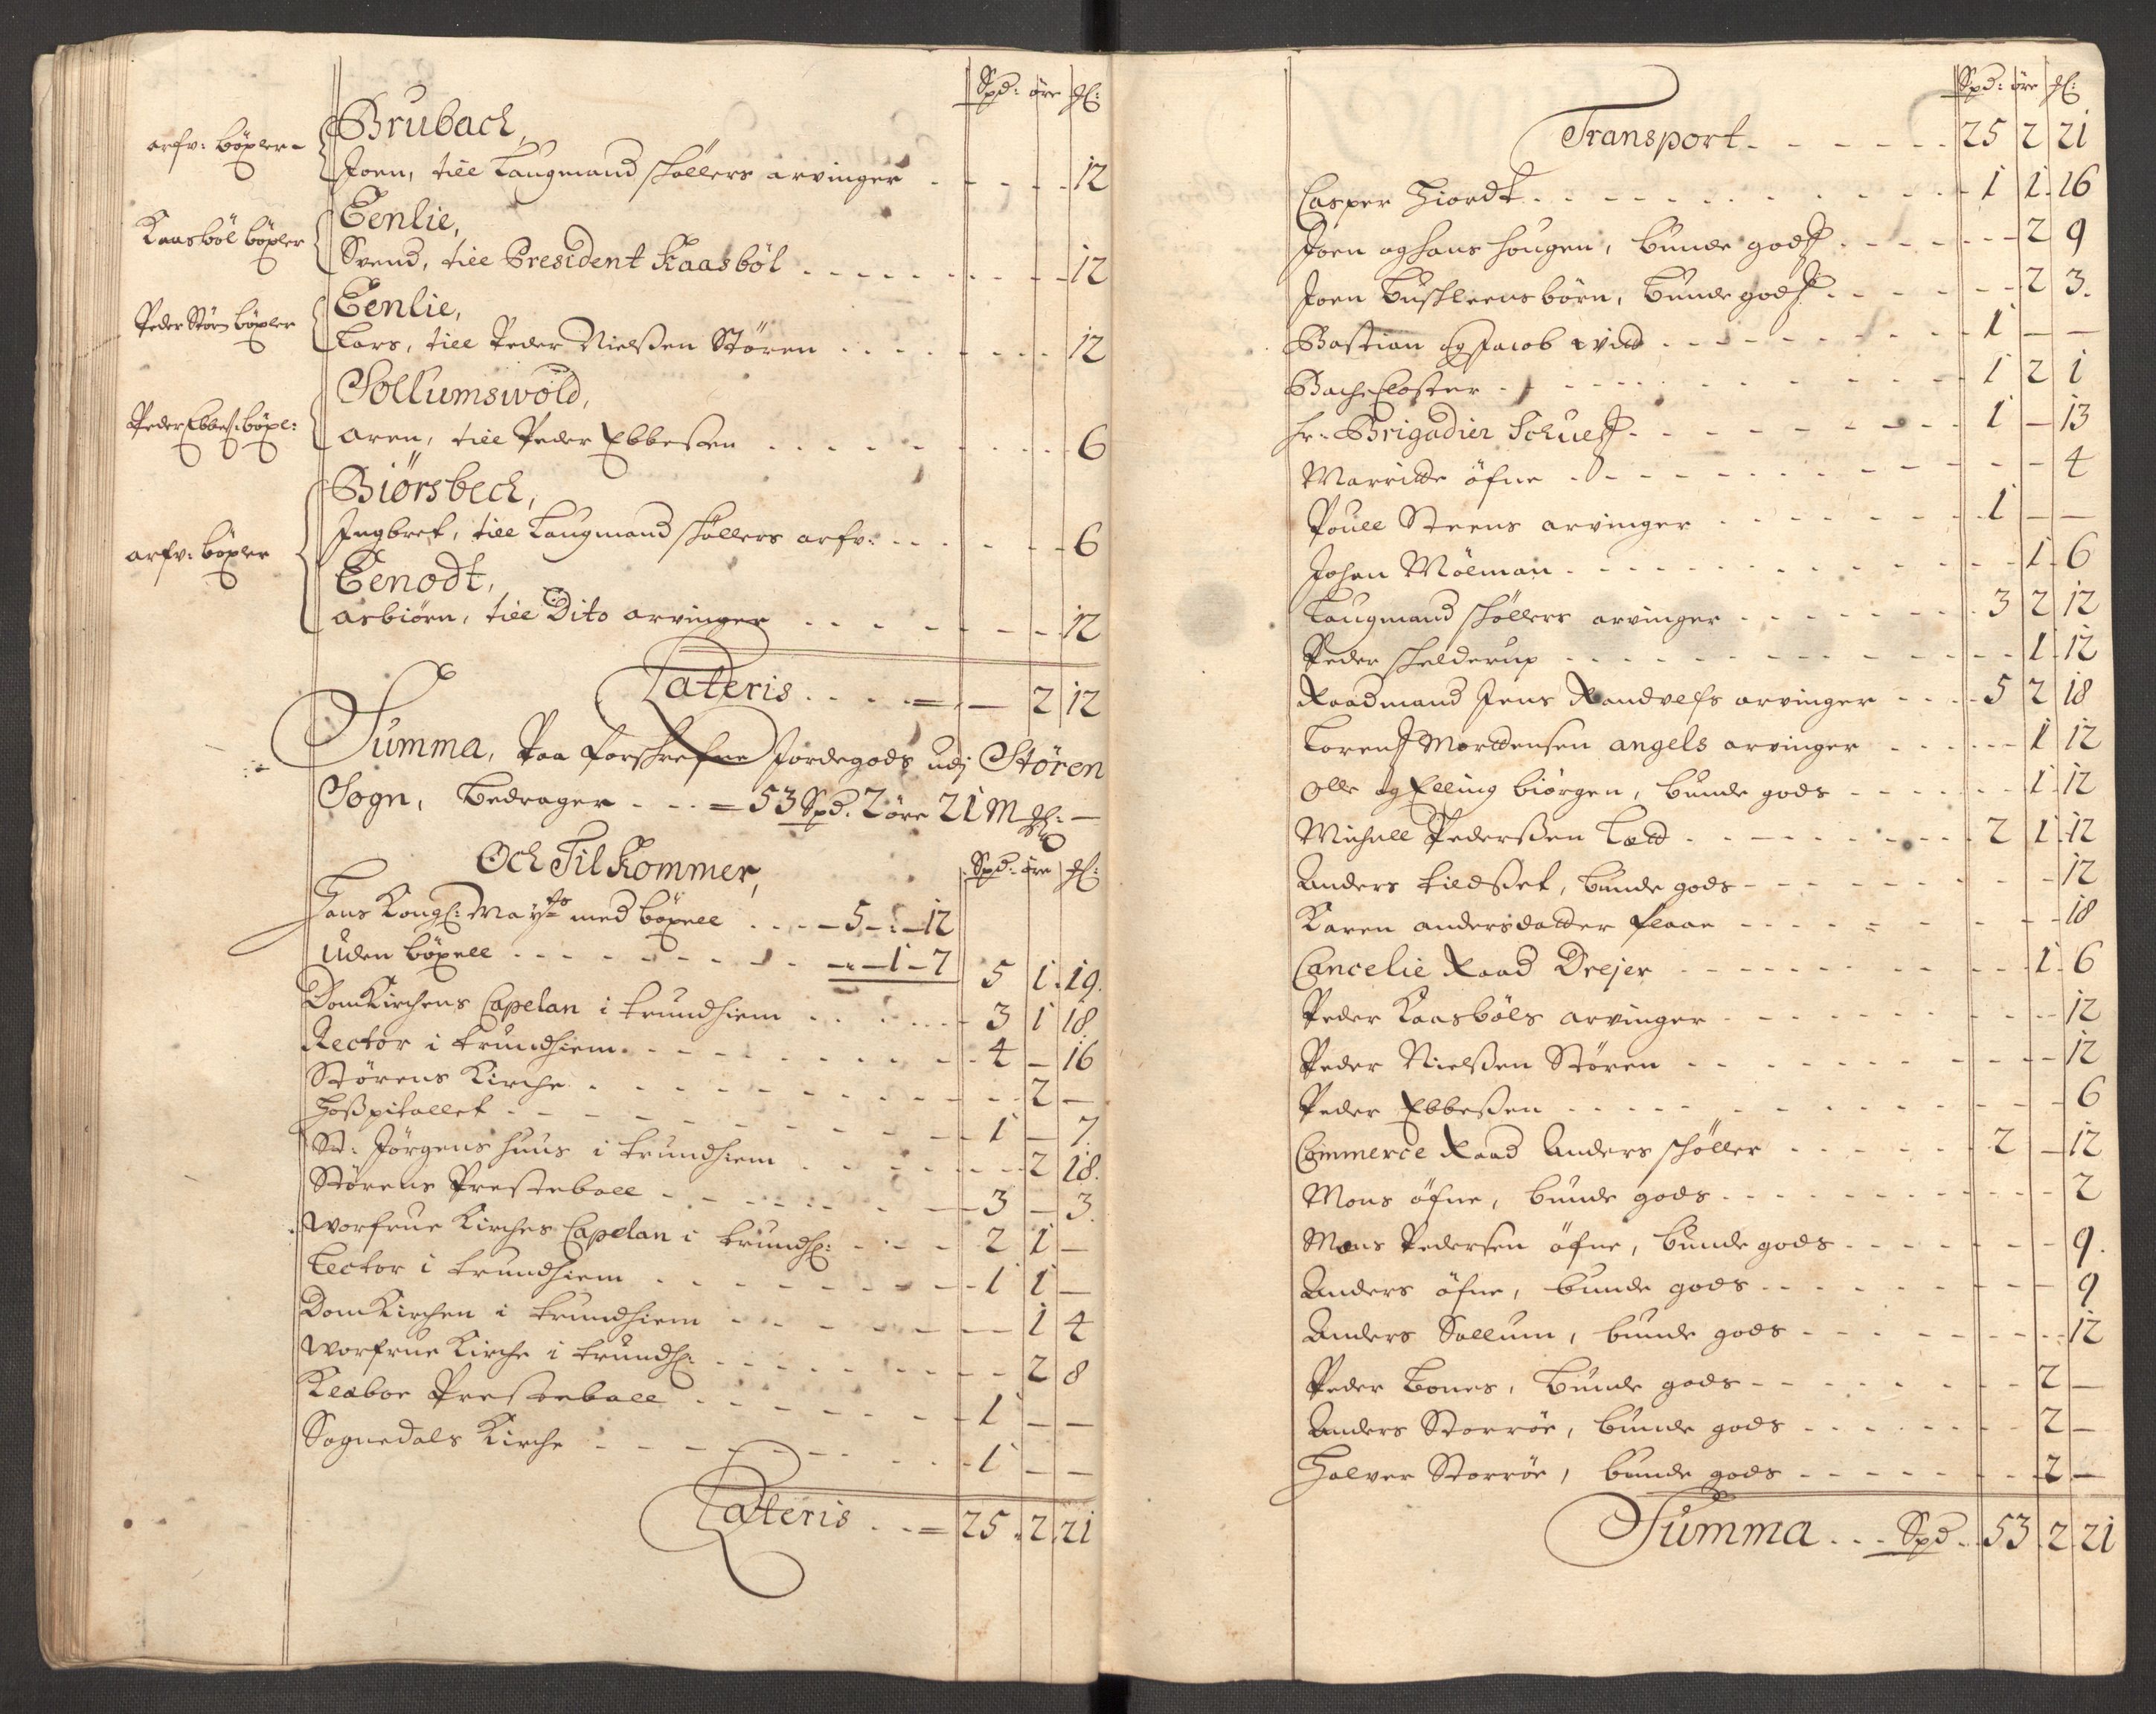 Spd: öre ₰:
arfv: böxler-
Brubach,
Joen, till Laugmand schøllers arvinger - - - - 12
Kaasböl böxler
Eenlie,
Svend, till President Kaasböl - - - - 12
Peder Støren böxler
Eenlie,
Lars, till Peder Nielßen Støren - - - - 12
Peder Ebbeß: böxl:
Sollumswold,
Aren, till Peder Ebbeßen - - - - 6
arfv: böxler
Biörsbech,
Ingbret, till Laugmand schøllers arfv: - - - 6
Eenodt,
Asbiörn, till Dito arvinger - - - - 12
Lateris - - - = - 2 12
Summa, Paa forschrefne Jordegods udj Støren
Sogn, bedrager - - = 53 Spd. 2 öre 21 M ₰: -
Och Til Kommer,
Spd: öre ₰:
Hans Kongl: Mayts med böxell - - - 5 - : - 12
Uden böxell - - - - - - 1 - 7 5 1 19.
Dom Kirchens Capelan i trundhiem - - - 3 1 18.
Rector i trundhiem - - - - 4 - 16
Størens Kirche - - - - 2 -
Hoßpitallet - - - - 1 - 7.
St: Jørgens huus i trundhiem - - - - 2 18.
Størens Presteboll - - - - 3 - 3.
Worfrue Kirches Capelan i trundh: - - - 2 1 -
Lector i trundhiem - - - - 1 1 -
Dom Kirchen i trundhiem - - - - 1 4
Worfrue Kirche i trundh: - - - - 2 8
Klæboe Presteboll - - - - 1 - -
Sognedals Kirche - - - - 1 - -
Lateris - - = 25 . 2 . 21
Spd: öre ₰:
Transport - - - - 25 2 21
Casper Hiordt - - - - 1 1 16
Joen og hans hougen, bunde godß - - - - 2 9
Joen Buschleens börn, bunde godß - - - - 2 3.
Bastian og Jacob qvidt - - - - 1 - -
Bache Closter - - - - 1 2 1
hr: Brigadier Schultz - - - - 1 - 13
Marritte öfne - - - - 4
Poull Steens arvinger - - - - 1 - -
Johan Mølman - - - - 1 6
Laugmand schøllers arvinger - - - - 3 2 12
Peder schelderup - - - - 1 12
Raadmand Jens Randvlfs arvinger - - - 5 2 18
Lorentz Mortensen angels arvinger - - - - 1 12
Olle og Elling biörgen, bunde gods - - - - 1 12
Michell Pederßen Lædt - - - - 2 1 12
Anders tildset, bunde gods - - - - 12
Karen andersdatter flaae - - - - 18
Cancelie Raad Drejer - - - - 1 6
Peder Kaasböls arvinger - - - - 12
Peder Nielßen Støren - - - - 12
Peder Ebbeßen - - - - 6
Commerce Raad Anders schøller - - - - 2 - 12
Mons öfne, bunde gods - - - - 2
Mons Pedersen öfne, bunde gods - - - - 9.
Anders öfne, bunde gods - - - - 9
Anders Sollum, bunde gods - - - - 12
Peder Bones, bunde gods - - - - 2 -
Anders Storröe, bunde gods - - - - 2 -
Halver Storröe, bunde gods - - - - 2 -
Summa - - - Spd - 53 2 21